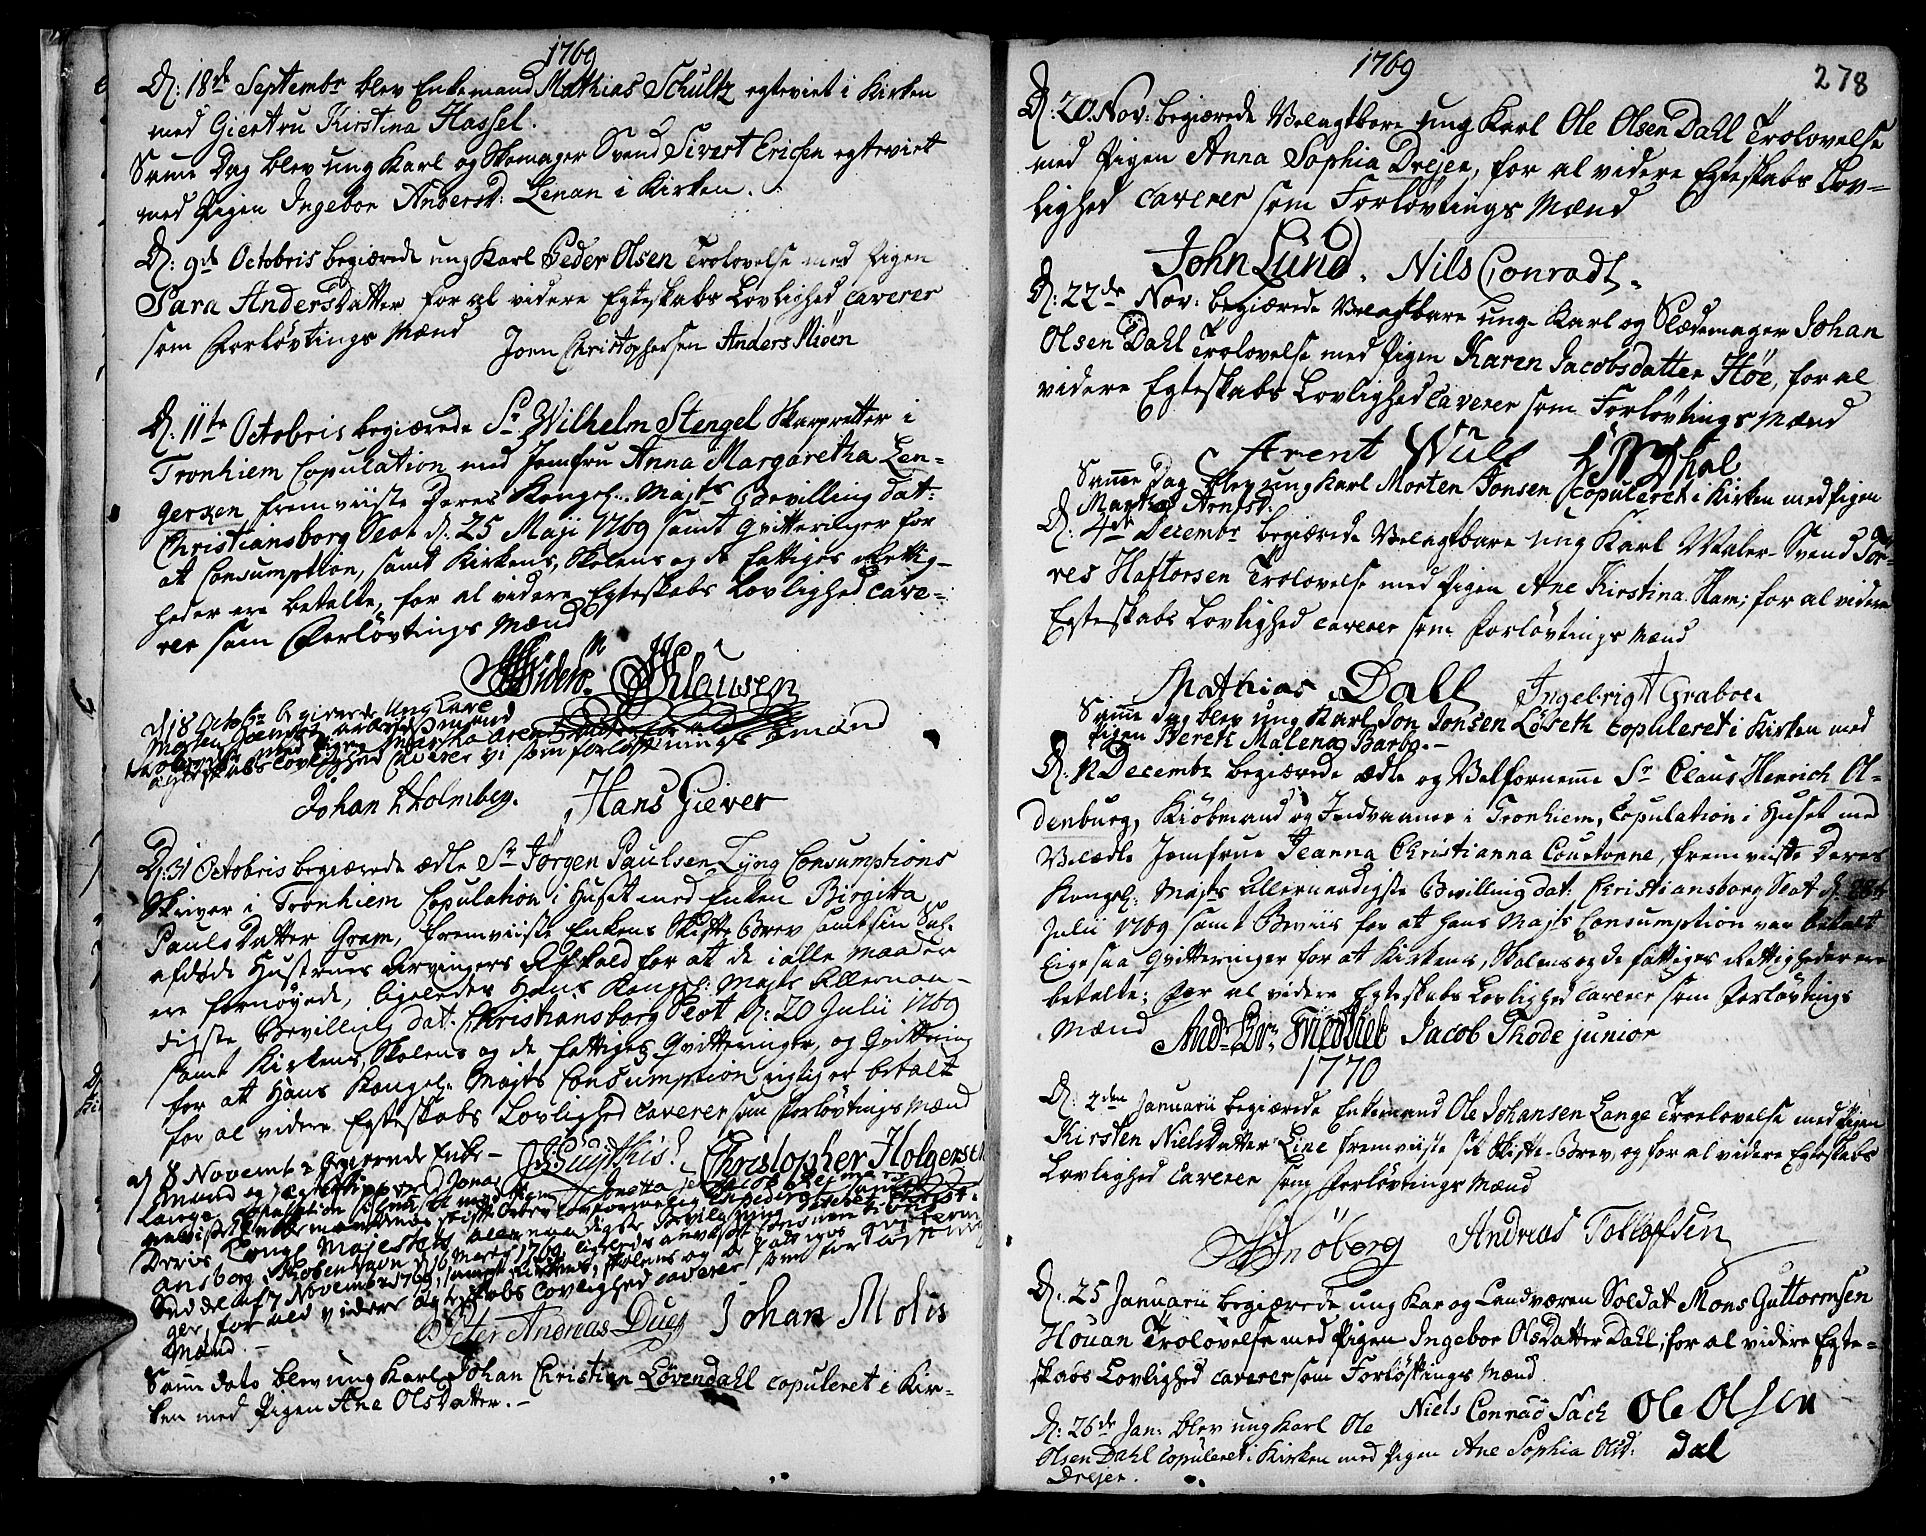 1769
D: 18de Septembr blev Enkemand Mathias Schultz egteviet i Kirken
med Giertru Kirstina Hassel.
Same Dag blev ung Karl og Skomager Svend Sivert Erichsen egteviet
med Pigen Ingebor Andersd: Lenan i Kirken.
D: 9de Octobris begiærede ung Karl Peder Olsen Trolovelse med Pigen
Sara Andersdatter for al videre Egteskabs Lovlighed caverer
som Forløvtings Mænd
Joen Christophersen Anders Miøen
D: 11te Octobris begiærede Sr Wilhelm Stengel Skarpretter i
Tronhiem Copulation med Jomfru Anna Margaretha Len-
gerken fremviiste Deres Kongel: Majts Bevilling dat:
Christiansborg Slot d: 25 Maji 1769 samt Qvitteringer for
at Consumption, samt Kirkens, Skolens og de fattiges Rettig-
heder ere betalte, for al videre Egteskabs Lovlighed cave-
rer som Forløvtings Mænd
Klausen
d 18 Octobr begierede Ung Karl
Morten Joensen
Trolovelse med Pigen Martha Arens
ægteskabs lovlighed Caverer vi som forløftnings mænd
Johan L Holmberg. Hans Giever
D: 31 Octobris begiærede ædle Sr Jørgen Paulsen Lyng Consumptions
Skriver i Tronhiem Copulation i Huset med Enken Birgitta
Pauls Datter Gram, fremviiste Enkens Skifte Brev samt sin Sal.
afdøde Hustrues Arvingers Afkald for at de i alle maader
ere fornøyede, ligeledes Hans Kongel: Majts Allernaa-
digste Bevilling dat. Christiansborg Slot d: 20 Julii 1769
samt Kirkens, Skolens og de fattiges Qvitteringer, og Qvittering
for at Hans Kongel: Majts Consumption rigtig er betalt
for al videre Egteskabs Lovlighed caverer som Forløvtings Mænd
Christopher Holgersen
d 8 Novemb: begierede Enke-
mand og Jonas
Lange Copulation
Deris Kongl Majestets allernaadigste Bevilgning
ansborg Kiøbenhavn d 16 Marti 1769, ligeledes
Seddel af 7 November 1769, samt Kirkens, Skolens og De Fattiges
ger, for ald videre ægteskabs Lovlighed caverer som
Mænd.
Peter Andreas Due Johan Molis
Same dato blev ung Karl Johan Christian Løvendahl copuleret i Kir-
ken med Pigen Ane Olsdatter.
1769
278
D: 20 Nov: begiærede Velagtbare ung Karl Ole Olsen Dahl Trolovelse
med Pigen Anna Sophia Drejer, for al videre Egteskabs Lov-
lighed caverer som Forløvtings Mænd
John Lund. Nils Conradt.
D: 22de Nov: begiærede Velagtbare ung Karl og Slædemager Johan
Olsen Dahl Trolovelse med Pigen Karen Jacobsdatter Høe, for al
videre Egteskabs Lovlighed caverer som Forløvtings Mænd
Arent Wüll
Samme Dag blev ung Karl Morten Jonsen Copuleret i Kirken med Pigen
Martha Arntsd.
D: 4de Decembr begiærede Velagtbare ung Karl Maler-Svend Tør-
res Haftorsen Trolovelse med Pigen Ane Kirstina Ham; for al videre
Egteskabs Lovlighed caverer som Forløvtings Mænd
Mathias Dall Ingebrigt Graboe
Samme dag blev ung Karl Jon Jonsen Løseth Copuleret i Kirken med
Pigen Bereth Malena Barbo.
D: 12 Decembr begiærede ædle og Velfornemme Sr Claus Henrich Ol-
denburg, Kiøbmand og Indvaaner i Tronhiem, Copulation i Huset med
Velædle Jomfrue Jeanna Christianna Coustonne, fremviiste Deres
Kongel: Majts Allernaadigste Bevilling dat: Christiansborg Slot d:
Julii 1769 samt Beviis for at Hans Majts Consumption var betalt
lige saa Qvitteringer for at Kirkens, Skolens og de fattiges Rettigheder ere
betalte; for al videre Egteskabs Lovlighed caverer som Forløvtings
Mænd Jacob Thode junior
1770
D: 2den Januarii begiærede Enkemand Ole Johansen Lange Trolovelse med Pigen
Kirsten Nielsdatter Line fremviiste sit Skifte-Brev, og for al videre Egteskabs
Lovlighed caverer som Forløvtings Mænd
Snøberg Andreas Tollofsen
D: 25 Januarii begiærede ung Kar og Landværen Soldat Mons Guttormsen
Houan Trolovelse med Pigen Ingebor Olsdatter Dahl, for al videre Egte-
skabs Lovlighed caverer som Forløftings Mænd
Niels Conrad Sach Ole Olsen
Dal
D: 26de Jan: blev ung Karl Ole
Olsen Dahl Copuleret i Kirken med Pigen Ane Sophia Olsd:
Drejer.